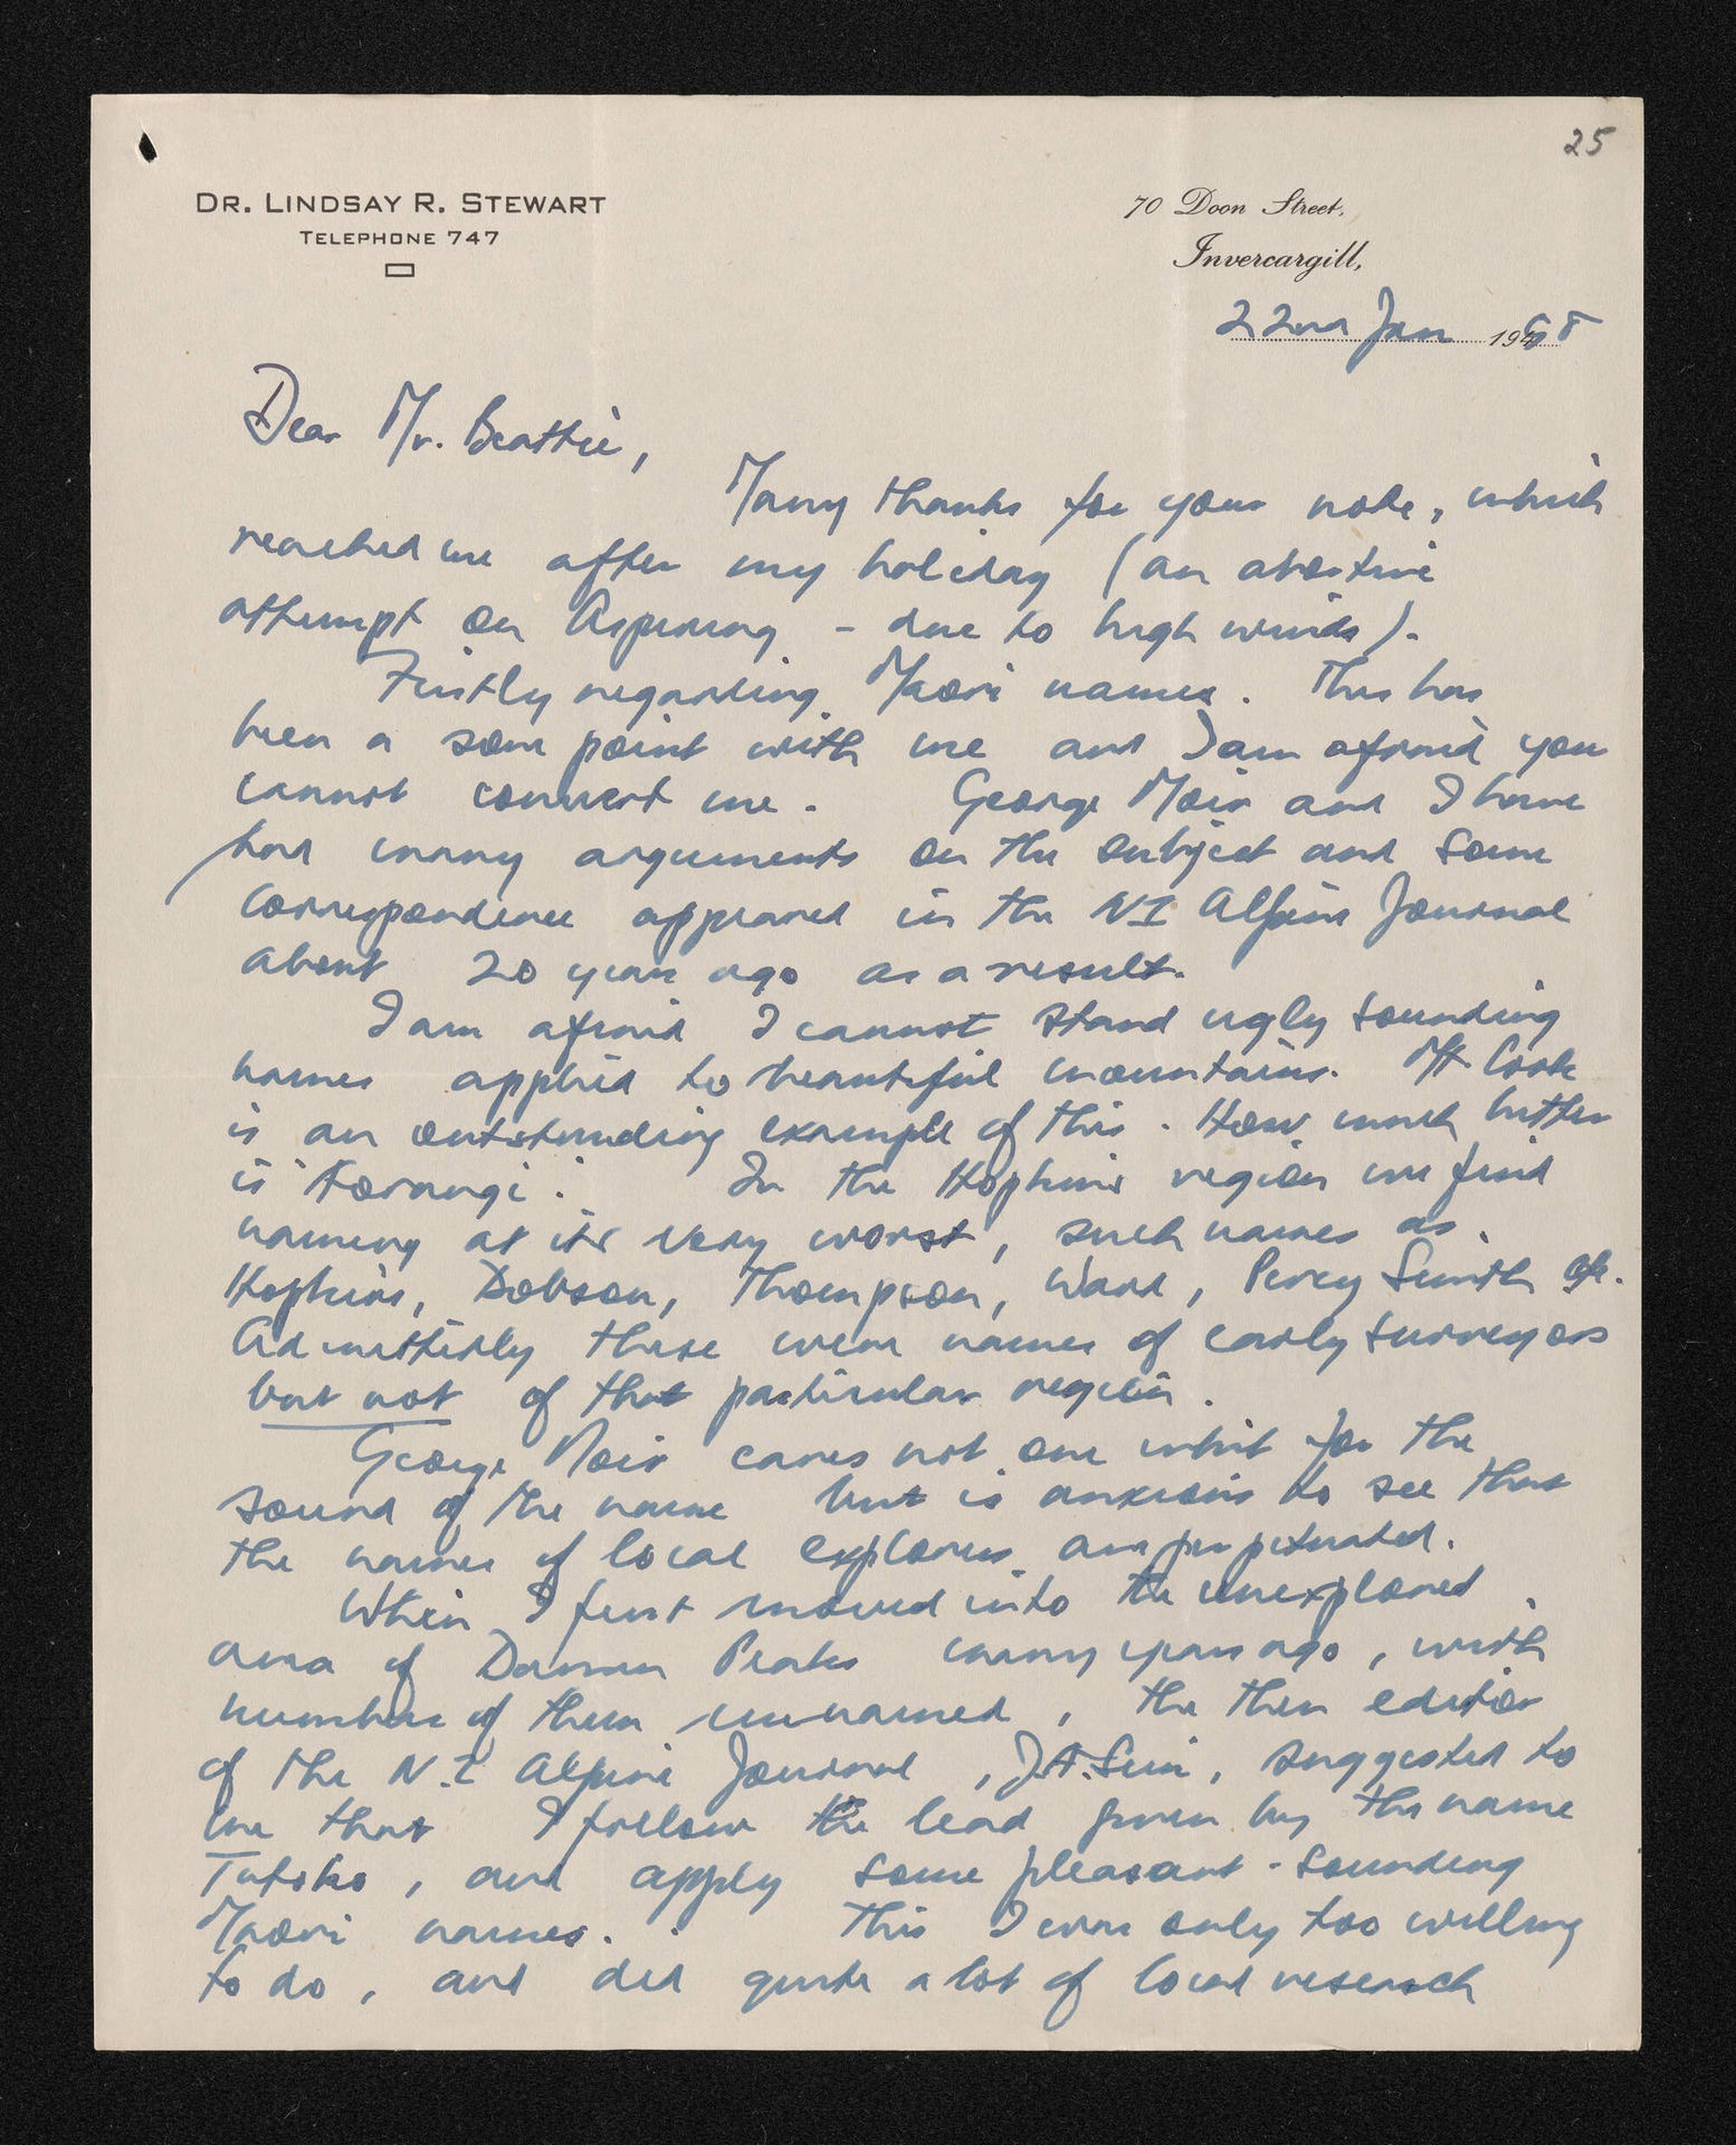 25
DR. LINDSAY R. STEWART
TELEPHONE 747
70 Doon Street,
Invercargill,
22nd Jan 195
Dear Mr. Beattie,
Many thanks for your note, which
reached me after my holiday (an abortive
attempt on Aspiring - due to high winds).
Firstly regarding Maori names. This has
been a sore point with me and I am afraid you
cannot convert me. George Moir and I have
had many arguments on the subject and some
correspondence appeared in the NZ Alpine Journal
about 20 years ago as a result.
I am afraid I cannot stand ugly sounding
names applied to beautiful mountains. Mt Cook
is an outstanding example of this. How much better
is 'Aorangi'. In the Hopkins region we find
naming at its very worst, such names as
Hopkins, Dobson, Thompson, Ward, Percy Smith etc.
Admittedly these were names of early surveyors
but not of that particular region.
George Moir cares not one whit for the
sound of the name but is anxious to see that
the names of local explorers are perpetuated.
When I first moved into the unexplored
area of Darran Peaks many years ago, with
number of them unnamed, the then editor
of the N.Z Alpine Journal, J.A. Sim, suggested to
me that I follow the lead given by the name
Tutoko, and apply some pleasant-sounding
Maori names. This I was only too willing
to do, and did quite a lot of local research